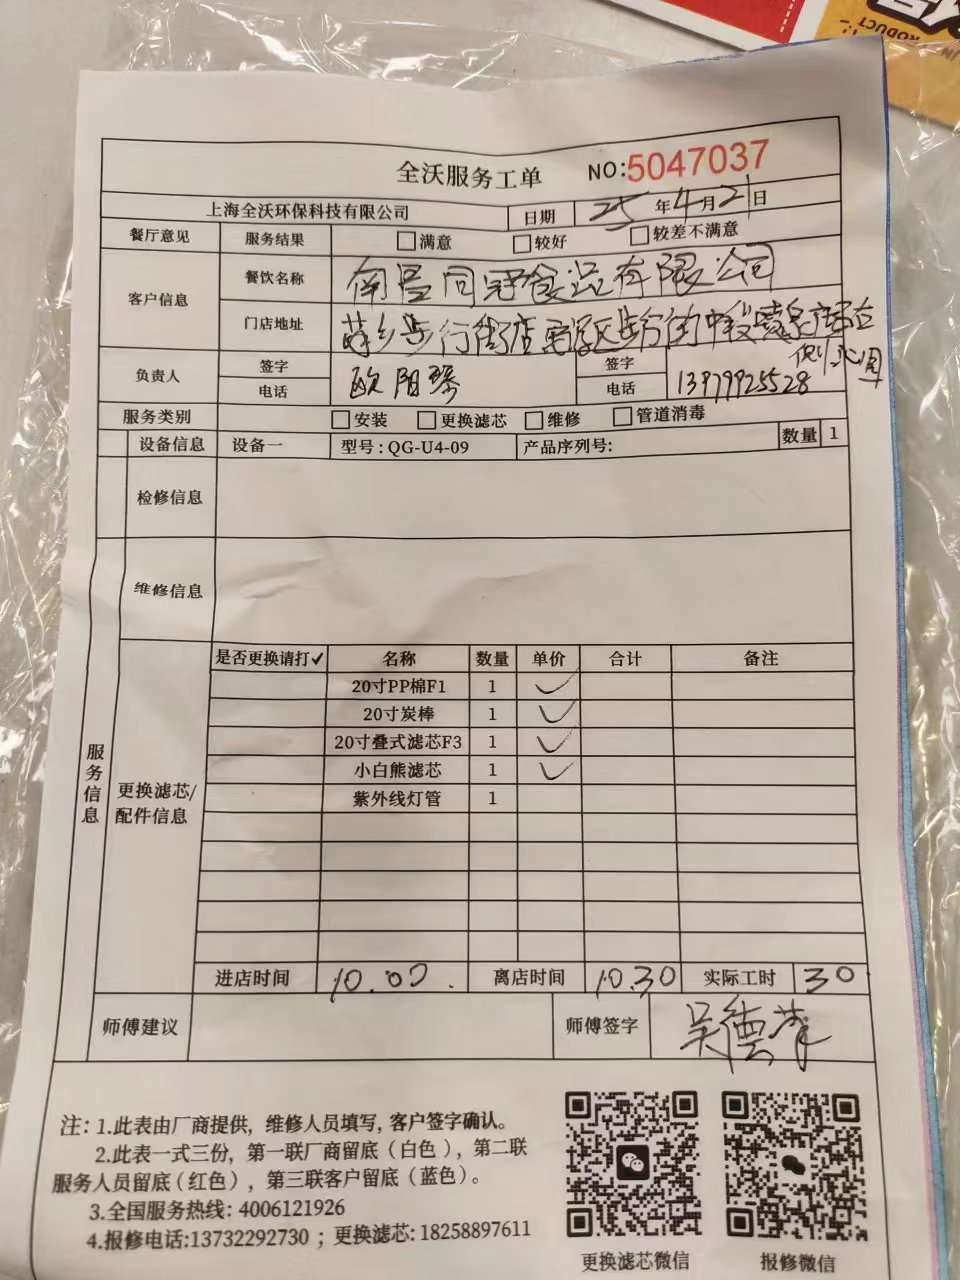 PRODUCT
全沃服务工单 NO:5047037
上海全沃环保科技有限公司 日期 25年4月21日
餐厅意见 服务结果 □满意 □较好 □较差不满意
客户信息 餐饮名称 南昌同冠食品有限公司
门店地址 萍乡步行街店 步行街中段喷泉广场舞台
负责人 签字 欧阳 签字
电话 电话 13979925528
服务类别 □安装 □更换滤芯 □维修 □管道消毒
设备信息 设备一 型号:QG-U4-09 产品序列号: 数量 1
检修信息
维修信息
服务信息
更换滤芯/配件信息
是否更换请打✓ 名称 数量 单价 合计 备注
20寸PP棉F1 1 ✓
20寸炭棒 1 ✓
20寸叠式滤芯F3 1 ✓
小白熊滤芯 1 ✓
紫外线灯管 1
进店时间 10.00. 离店时间 10.30 实际工时 30
师傅建议 师傅签字 吴德
注: 1.此表由厂商提供，维修人员填写，客户签字确认。
2.此表一式三份，第一联厂商留底（白色），第二联
服务人员留底（红色），第三联客户留底（蓝色）。
3.全国服务热线: 4006121926
4.报修电话:13732292730 ；更换滤芯: 18258897611
更换滤芯微信 报修微信